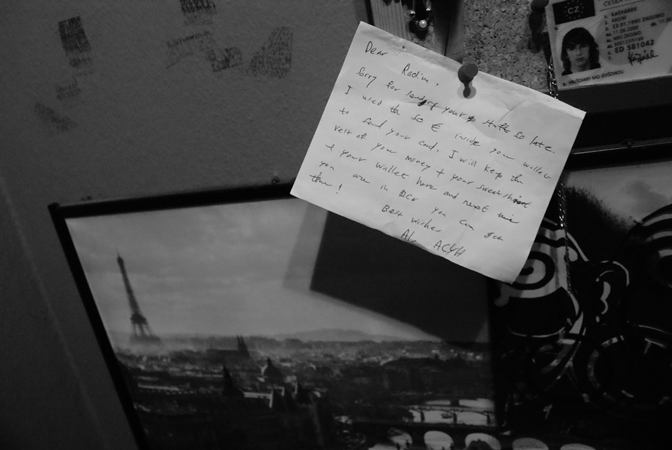 Dear Radim,
Sorry for sending your stuff so late
I used the 50 € inside your wallet
to send your card. I will keep the
rest of your money + your sweatshirt
+ your wallet here and next time
you are in BCN you can have
them!
Best wishes
ACYH
CZ
ED 581042